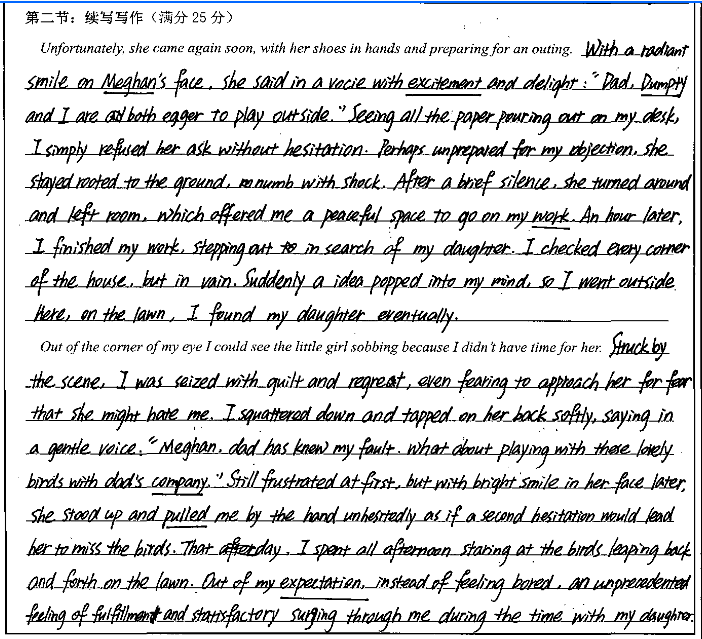 第二节：续写写作（满分25分）
Unfortunately, she came again soon, with her shoes in hands and preparing for an outing. With a radiant
smile on Meghan's face, she said in a vocie with excitement and delight: "Dad, Dumpty
and I are both egger to play outside." Seeing all the paper pouring out on my desk,
I simply refused her ask without hesitation. Perhaps unprepared for my objection, she
stayed rooted to the ground, numb with shock. After a brief silence, she turned around
and left room, which offered me a peaceful space to go on my work. An hour later,
I finished my work, stepping out to in search of my daughter. I checked every corner
of the house, but in vain. Suddenly a idea popped into my mind, so I went outside.
Here, on the lawn, I found my daughter eventually.
Out of the corner of my eye I could see the little girl sobbing because I didn't have time for her. Struck by
the scene, I was seized with guilt and regreat, even fearing to approach her for fear
that she might hate me. I squattered down and tapped on her back softly, saying in
a gentle voice: "Meghan, dad has know my fault. What about playing with these lovely
birds with dad's company." Still frustrated at first, but with bright smile in her face later,
she stood up and pulled me by the hand unhesitedly as if a second hesitation would lead
her to miss the birds. That day, I spent all afternoon staring at the birds leaping back
and forth on the lawn. Out of my expectation, instead of feeling bored, an unprecedented
feeling of fulfillment and statisfactory surging through me during the time with my daughter.